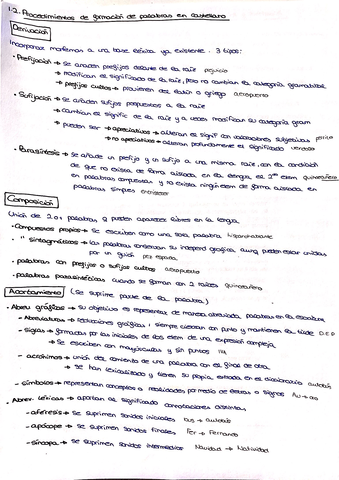 1.2. Procedimientos de formación de palabras en castellano
Derivación
Incorporar morfemas a una base léxica ya existente. 3 tipos:
• Prefijación → se añaden prefijos delante de la raíz prejuicio
→ modifican el significado de la raíz, pero no cambian la categoría gramatical
→ prefijos cultos → provienen del latín o griego aeropuerto
• Sufijación → se añaden sufijos pospuestos a la raíz
→ cambian el signific de la raíz y a veces modifican su categoría gram
→ pueden ser → apreciativos → alteran el signif con valoraciones subjetivas perrito
→ no apreciativos → alteran profundamente el significado
• Parasíntesis → se añade un prefijo y un sufijo a una misma raíz, con la condición
de que no exista de forma aislada en la lengua el 2º elem quinceañera
en palabras compuestas y no exista ningún elem de forma aislada en
palabras simples entristecer
Composición
Unión de 2 o + palabras q pueden aparecer libres en la lengua.
• Compuestos propios → se escriben como una sola palabra hispanohablante
• " sintagmáticos → las palabras conservan su independ gráfica aunq pueden estar unidas
por un guión
• palabras con prefijos o sufijos cultos aeropuerto
• palabras parasintéticas cuando se forman con 2 raíces quinceañera
Acortamiento (Se suprime parte de la palabra)
• Abrev gráficas → su objetivo es representar de manera abreviada, palabras en la escritura
- Abreviaturas → reducciones gráficas, siempre cierran con punto y mantienen la tilde D.E.P
- siglas → formadas por las iniciales de los elem de una expresión compleja
→ Se escriben con mayúsculas y sin puntos
- acrónimos → unión del comienzo de una palabra con el final de otra
→ se han lexicalizado y tienen su propia entrada en el diccionario
- símbolos → representan conceptos o realidades por medio de letras o signos Au → oro
• Abrev léxicas → aportan al significado connotaciones distintas
- aféresis → se suprimen sonidos iniciales bus → autobús
- apócope → se suprimen sonidos finales Fer → Fernando
- síncopa → se suprimen sonidos intermedios Navidad → Natividad